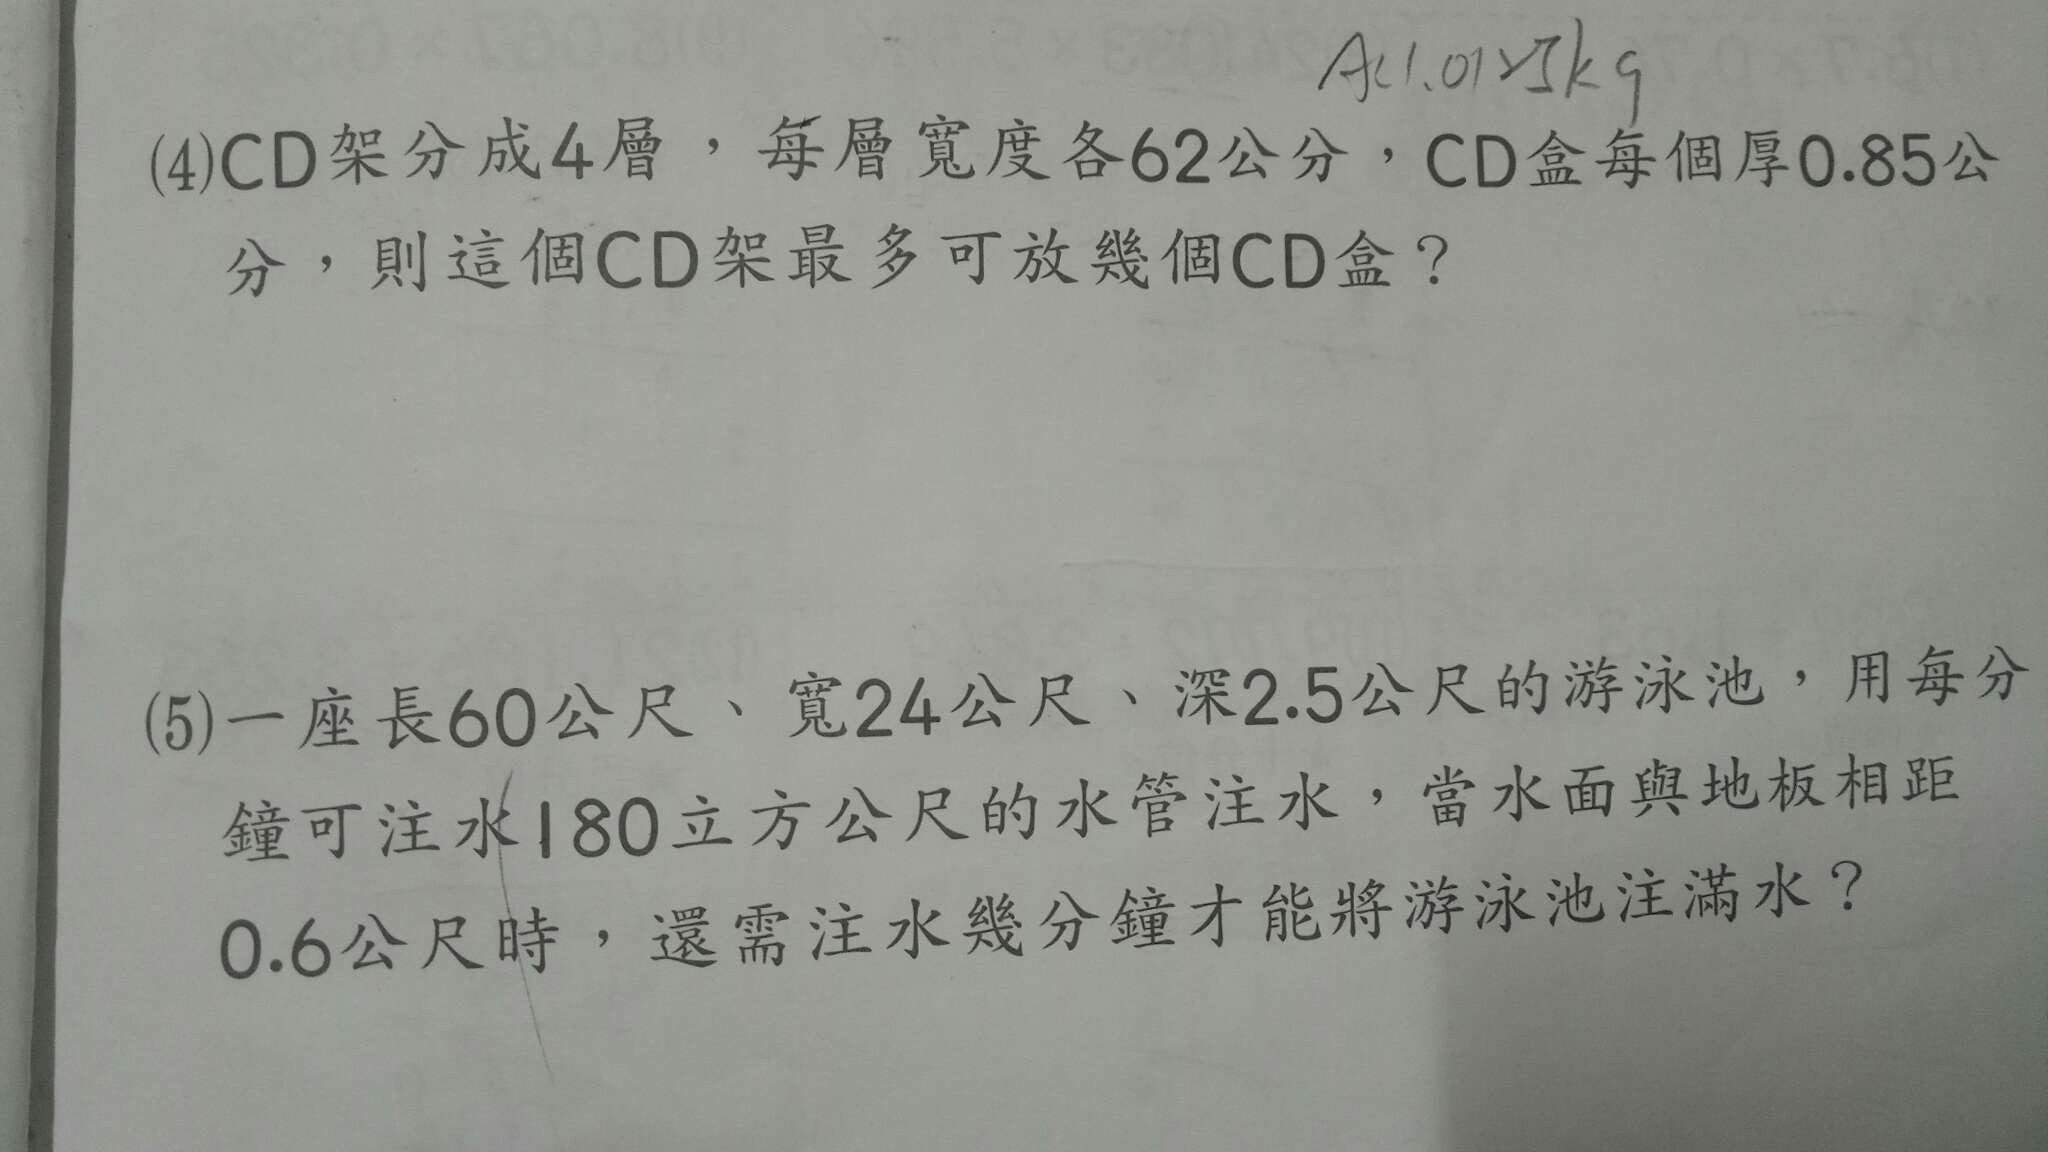 A:1.0125kg
(4)CD架分成4層，每層寬度各62公分，CD盒每個厚0.85公
分，則這個CD架最多可放幾個CD盒？
(5)一座長60公尺、寬24公尺、深2.5公尺的游泳池，用每分
鐘可注水180立方公尺的水管注水，當水面與地板相距
0.6公尺時，還需注水幾分鐘才能將游泳池注滿水？